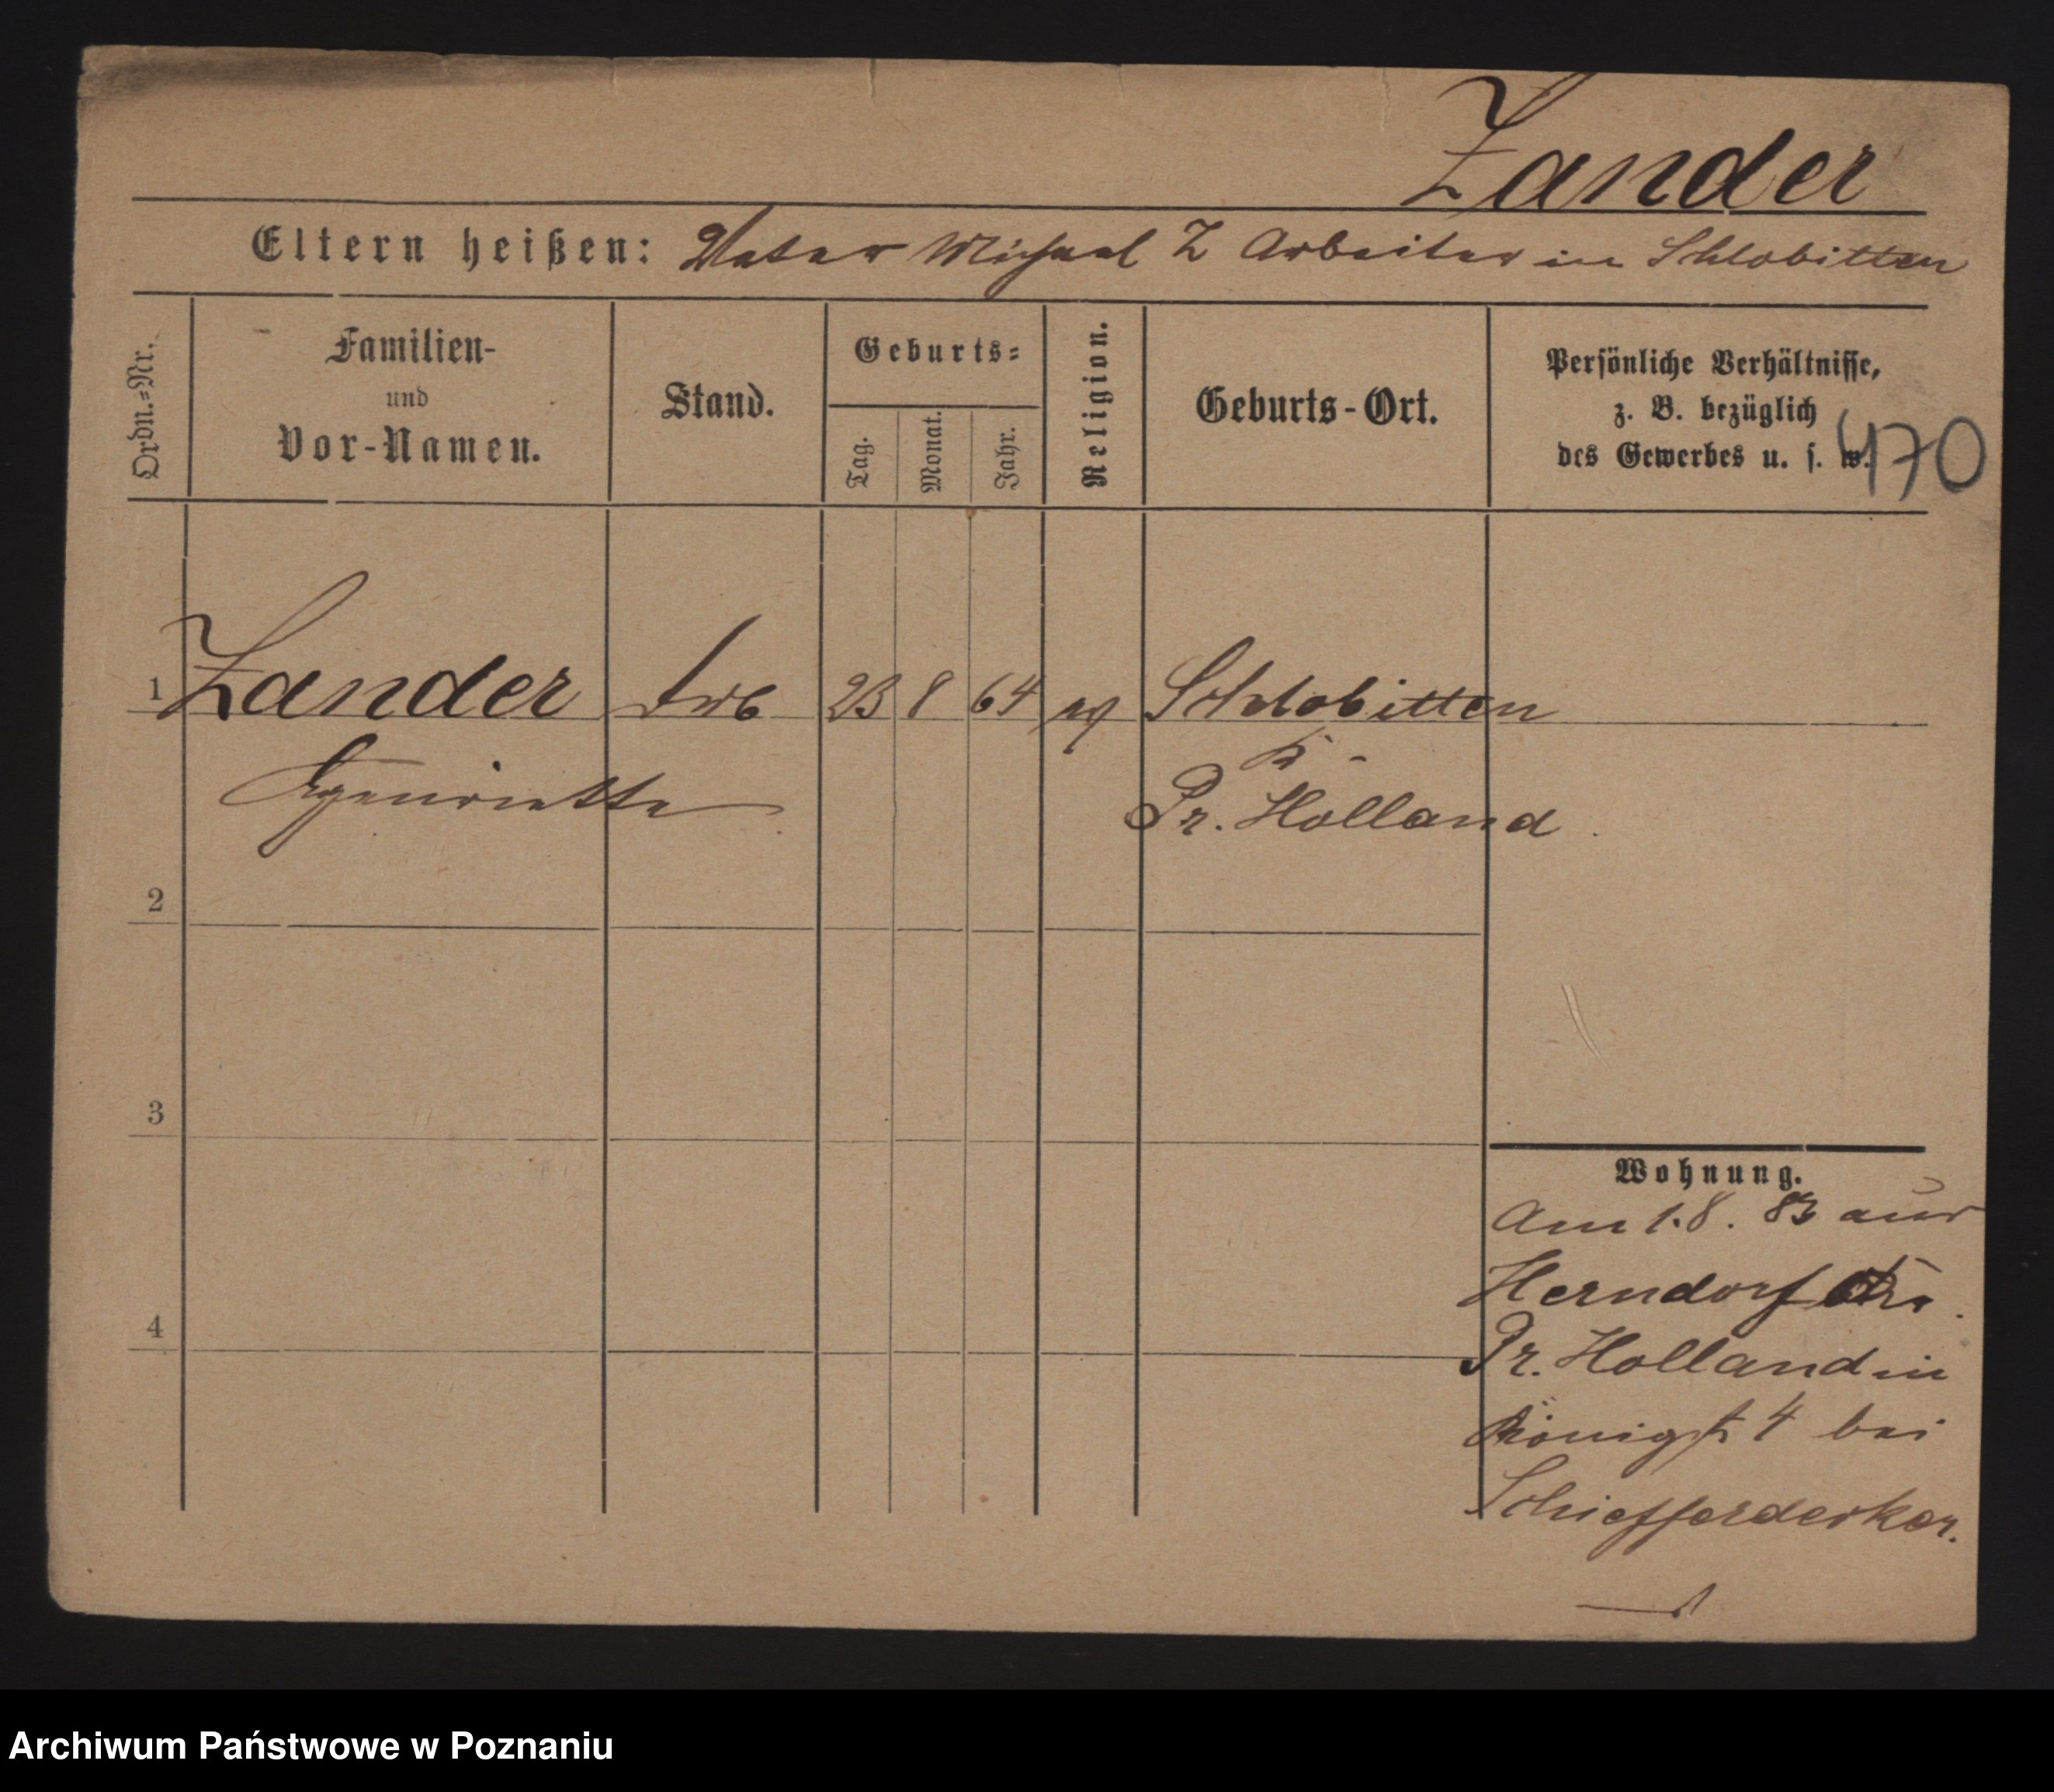 Zander
Eltern heißen: Vater Michael Z Arbeiter in Schlobitten
Ordn.=Nr.
Familien-
und
Vor-Namen.
Stand.
Geburts=
Tag.
Monat.
Jahr.
Religion.
Geburts-Ort.
Persönliche Verhältnisse,
z. B. bezüglich
des Gewerbes u. s. w.
470
1 Zander 23 8 64 Schlobitten
Henriette
Pr. Holland
2
3
4
Wohnung.
Am 1.8. 83 aus
Herndorf
Pr. Holland in
Königst 4 bei
Schiefferdecker.
Archiwum Państwowe w Poznaniu